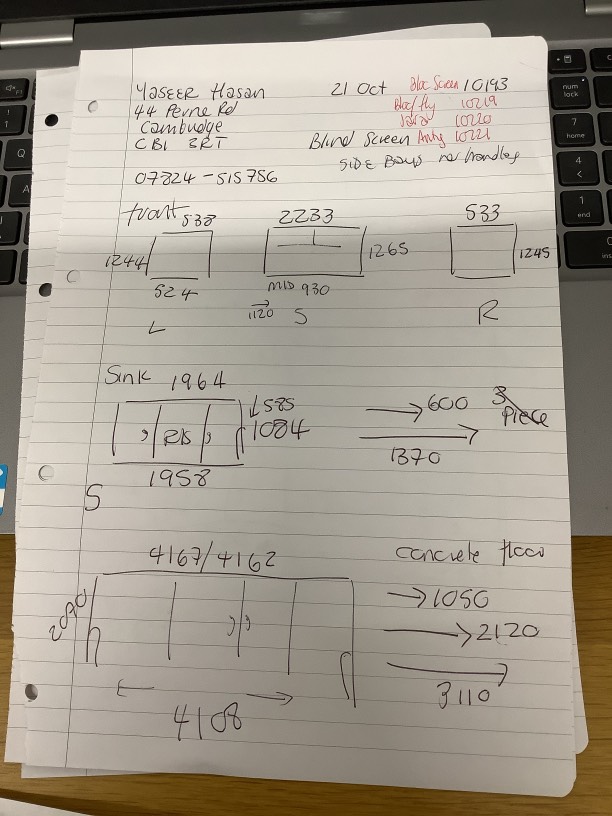 Yaseer Hasan 21 Oct Bloc Screen 10193
44 Perne Rd Bloc fly 10219
Cambudge 10220
CB1 3RT Blind Screen Anthy 10221
SIDE Bays no handles
07824-515756
front 538 2233 533
1244 1265 1245
524 MID 930
1120
L S R
Sink 1964
↓585 → 600 3 Piece
1084
→ 1370
1958
S
4167/4162 concrete floor
2090 → 1050
→ 2120
→ 3110
← → 4108